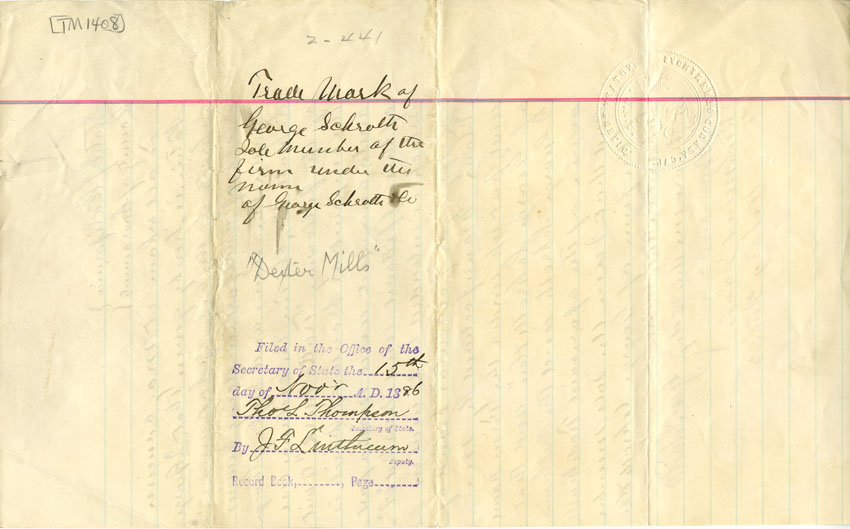 [TM1408]
2-441
Trade Mark of
George Schroth
Sole Member of the
firm under the
name
of George Schroth & Co
"Dexter Mills"
Filed in the Office of the
Secretary of State the 15th
day of Nov'r A. D. 1886
Thos L. Thompson
Secretary of State.
By J F Linthicum
Deputy.
Record Book, , Page